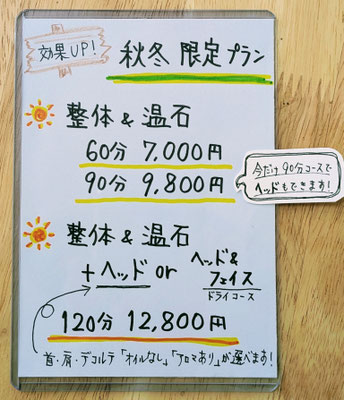 効果UP!
秋冬 限定プラン
整体 & 温石
60分 7,000円
90分 9,800円
今だけ 90分コースで
ヘッドもできます!
整体 & 温石
+ヘッド or ヘッド&
フェイス
ドライコース
120分 12,800円
首・肩・デコルテ「オイルなし」「アロマあり」が選べます!